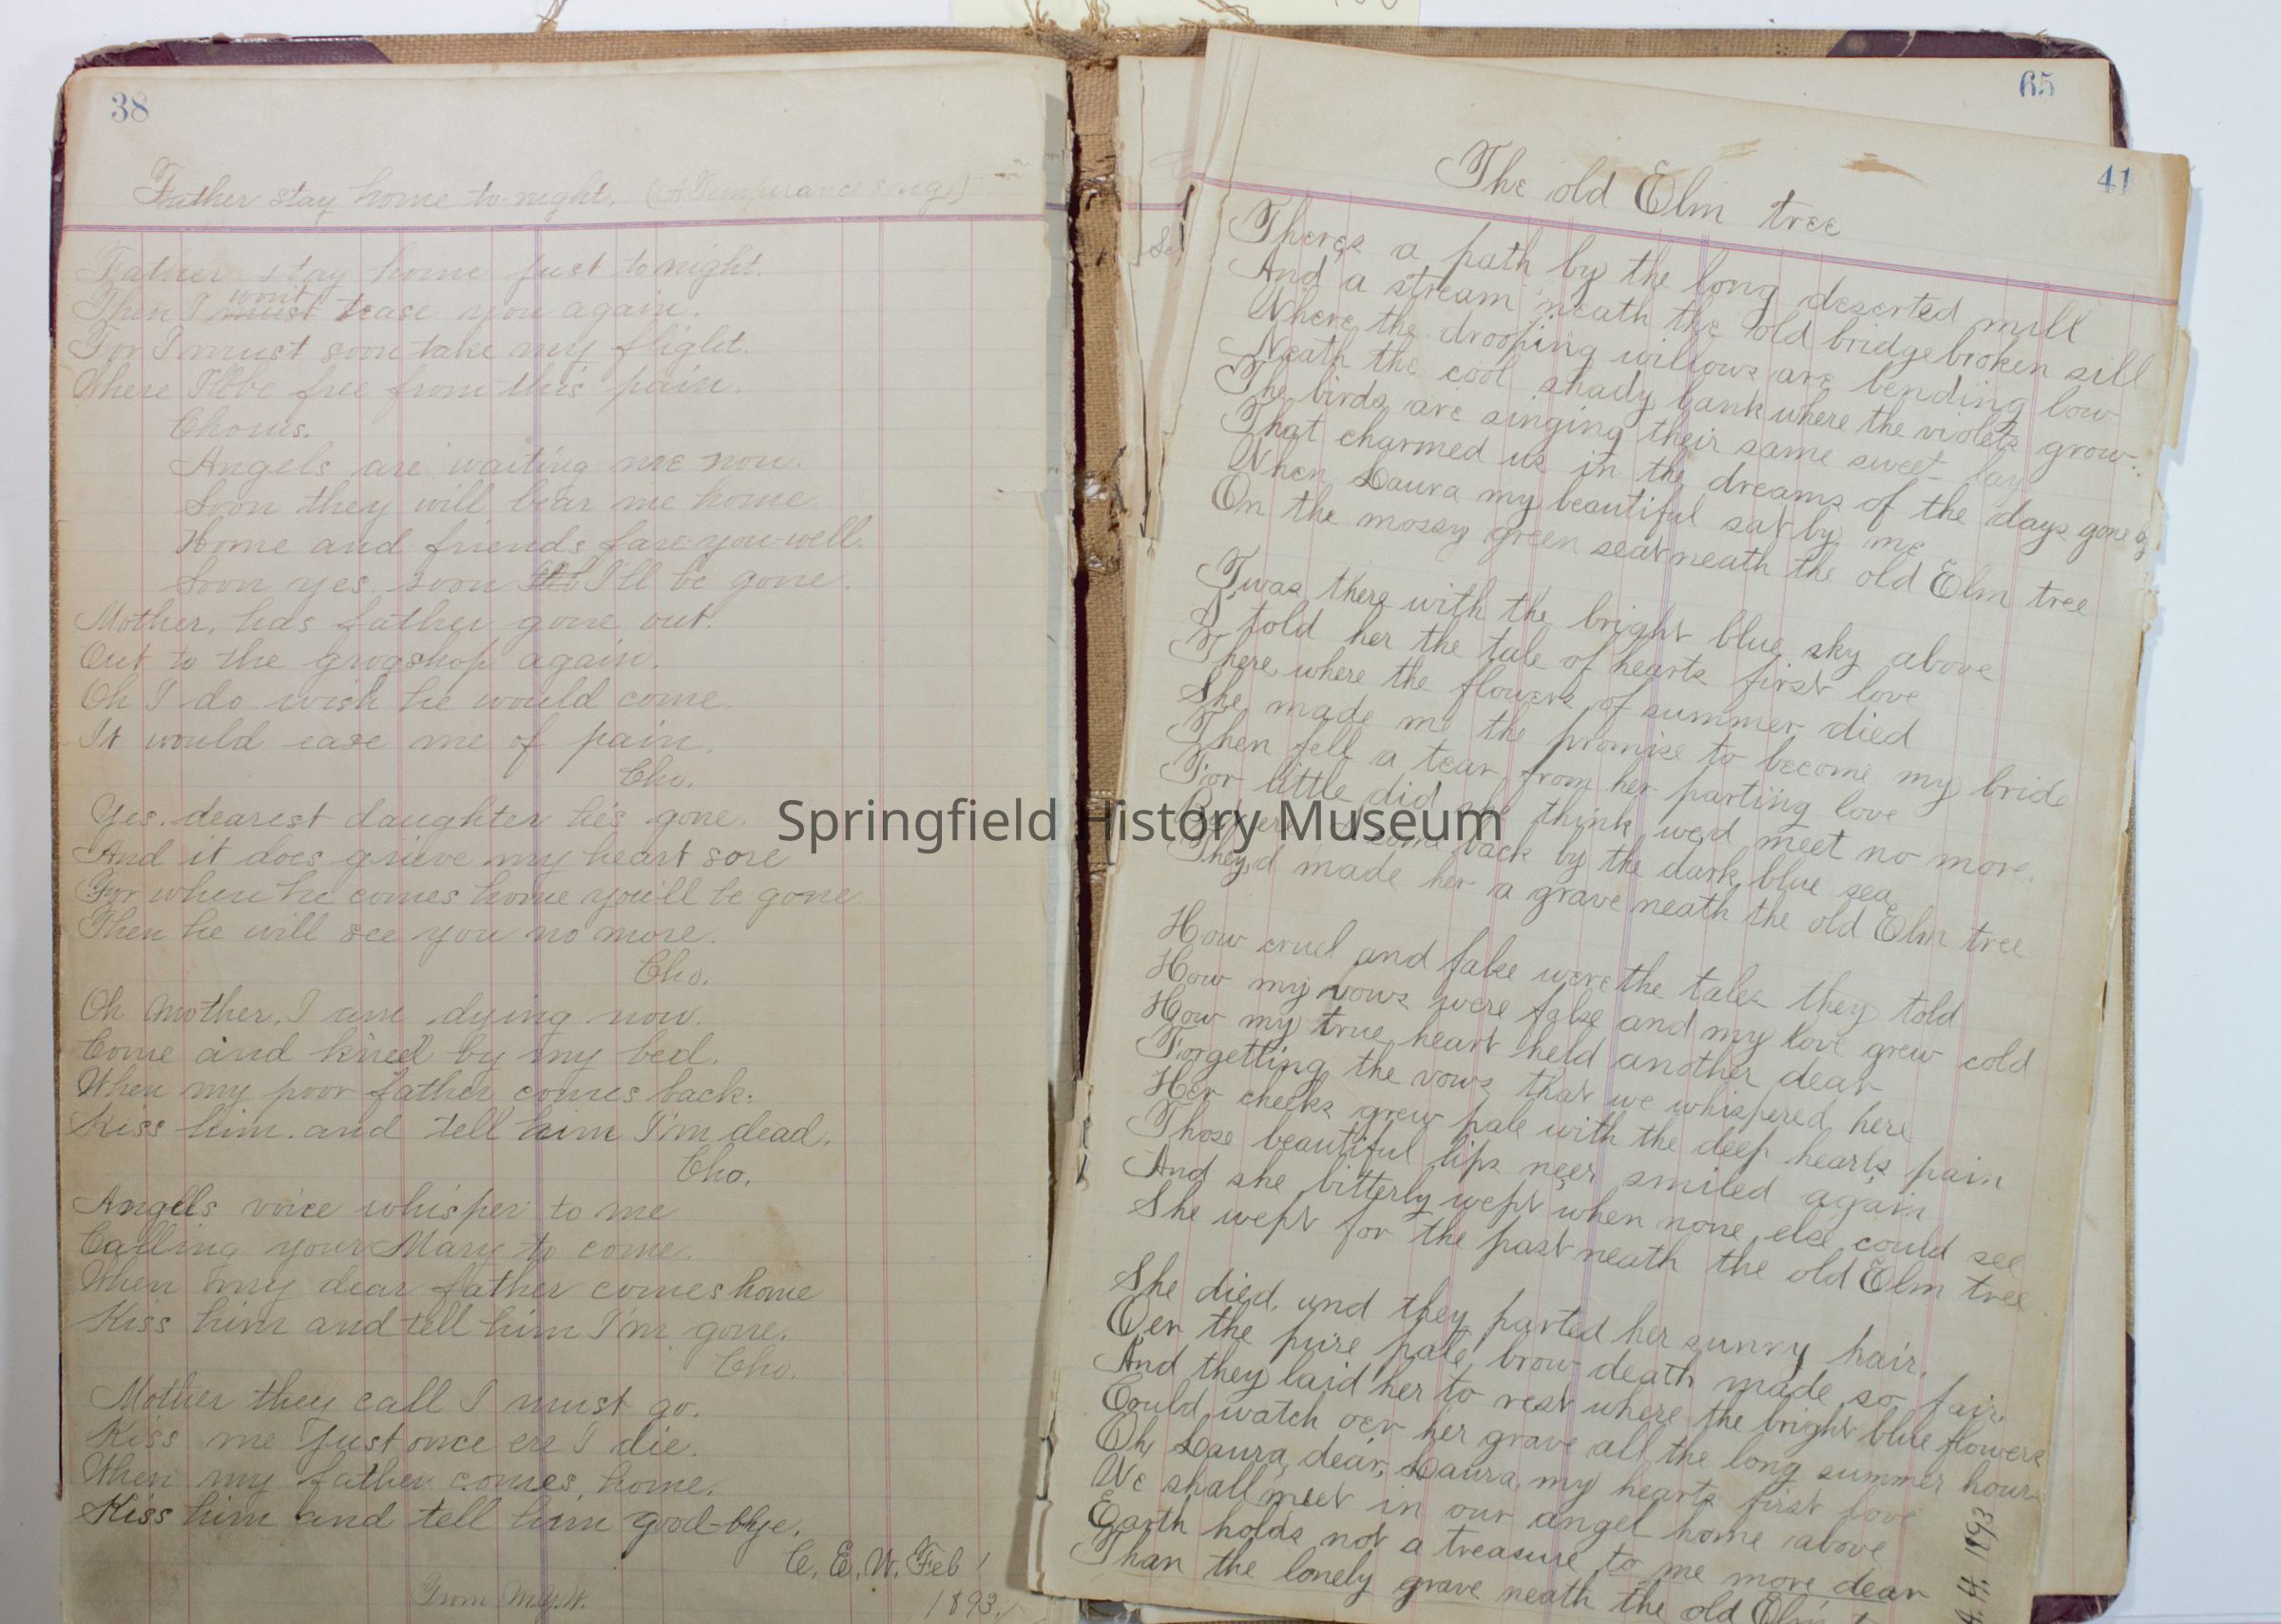 38
Father stay home to-night. (A Temperance song.)
Father stay home just to night.
Then I must won't tease you again.
For I must soon take my flight.
Where I'll be free from this pain.
Chorus.
Angels are waiting me now.
Soon they will bear me home
Home and friends fare-you-well.
Soon yes. soon I'll be gone.
Mother, has father gone out.
Out to the grogshop again.
Oh I do wish he would come.
It would ease me of pain.
Cho.
Yes. dearest daughter he's gone.
And it does grieve my heart sore
For when he comes home you'll be gone
Then he will see you no more.
Cho.
Oh Mother, I am dying now.
Come and kneel by my bed.
When my poor father comes back.
Kiss him. and tell him I'm dead.
Cho.
Angels voice whisper to me
Calling your Mary to come.
When my dear father comes home
Kiss him and tell him I'm gone.
Cho.
Mother they call I must go.
Kiss me just once ere I die.
When my father comes, home.
Kiss him and tell him good-bye.
C. E. W. Feb 1
1893.
From M.Y.H.
65
41
The old Elm tree
There's a path by the long deserted mill
And a stream neath the old bridge broken sill
Where the drooping willows are bending low
Neath the cool shady bank where the violets grow.
The birds are singing their same sweet lay
That charmed us in the dreams of the days gone by
When Laura my beautiful sat by me
On the mossy green seat neath the old Elm tree
Twas there with the bright blue sky above
I told her the tale of hearts first love
There where the flowers of summer died
She made me the promise to become my bride
Then fell a tear from her parting love
For little did she think we'd meet no more.
come back by the dark blue sea
They'd made her a grave neath the old Elm tree
How cruel and false were the tales they told
How my vows were false and my love grew cold
How my true heart held another dear
Forgetting the vows that we whispered here
Her cheeks grew pale with the deep hearts pain
Those beautiful lips ne'er smiled again
And she bitterly wept when none else could see
She wept for the past neath the old Elm tree
She died and they parted her sunny hair.
Oer the pure pale brow death made so fair.
And they laid her to rest where the bright blue flowers
Could watch oer her grave all the long summer hour
Oh Laura, dear, Laura, my hearts first love
We shall meet in our angel home above
Earth holds not a treasure to me more dear
Than the lonely grave neath the old Elm
H. 1893
Springfield History Museum